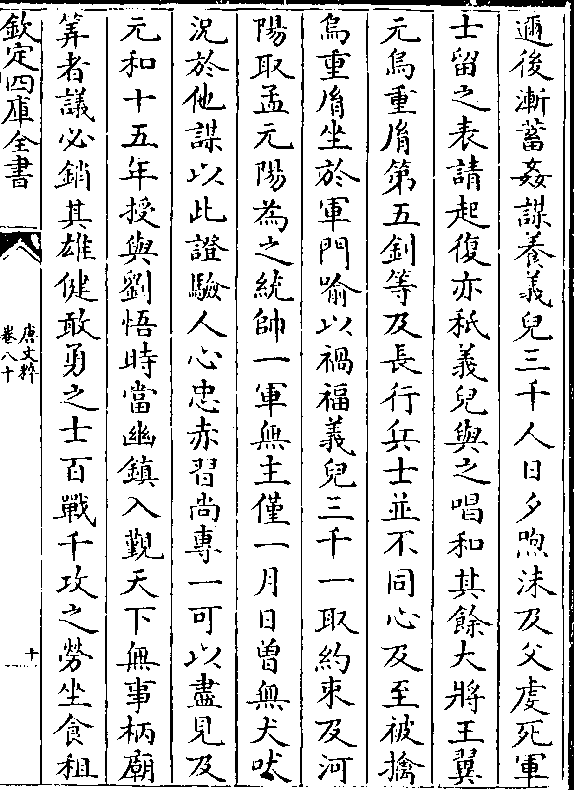 遁後漸蓄姦謀養義兒三千人日夕喣沫及父虔死軍
士留之表請起復亦秪義兒與之唱和其餘大將王翼
元烏重𦙍第五釗等及長行兵士並不同心及至被擒
烏重𦙍坐於軍門喻以禍福義兒三千一取約束及河
陽取孟元陽為之統帥一軍無主僅一月日曽無犬吠
況於他謀以此證驗人心忠赤習尚專一可以盡見及
元和十五年授與劉悟時當幽鎮入覲天下無事柄廟
筭者議必銷其雄健敢勇之士百戰千攻之勞坐食租
欽定四庫全書
唐文粹
卷八十
十